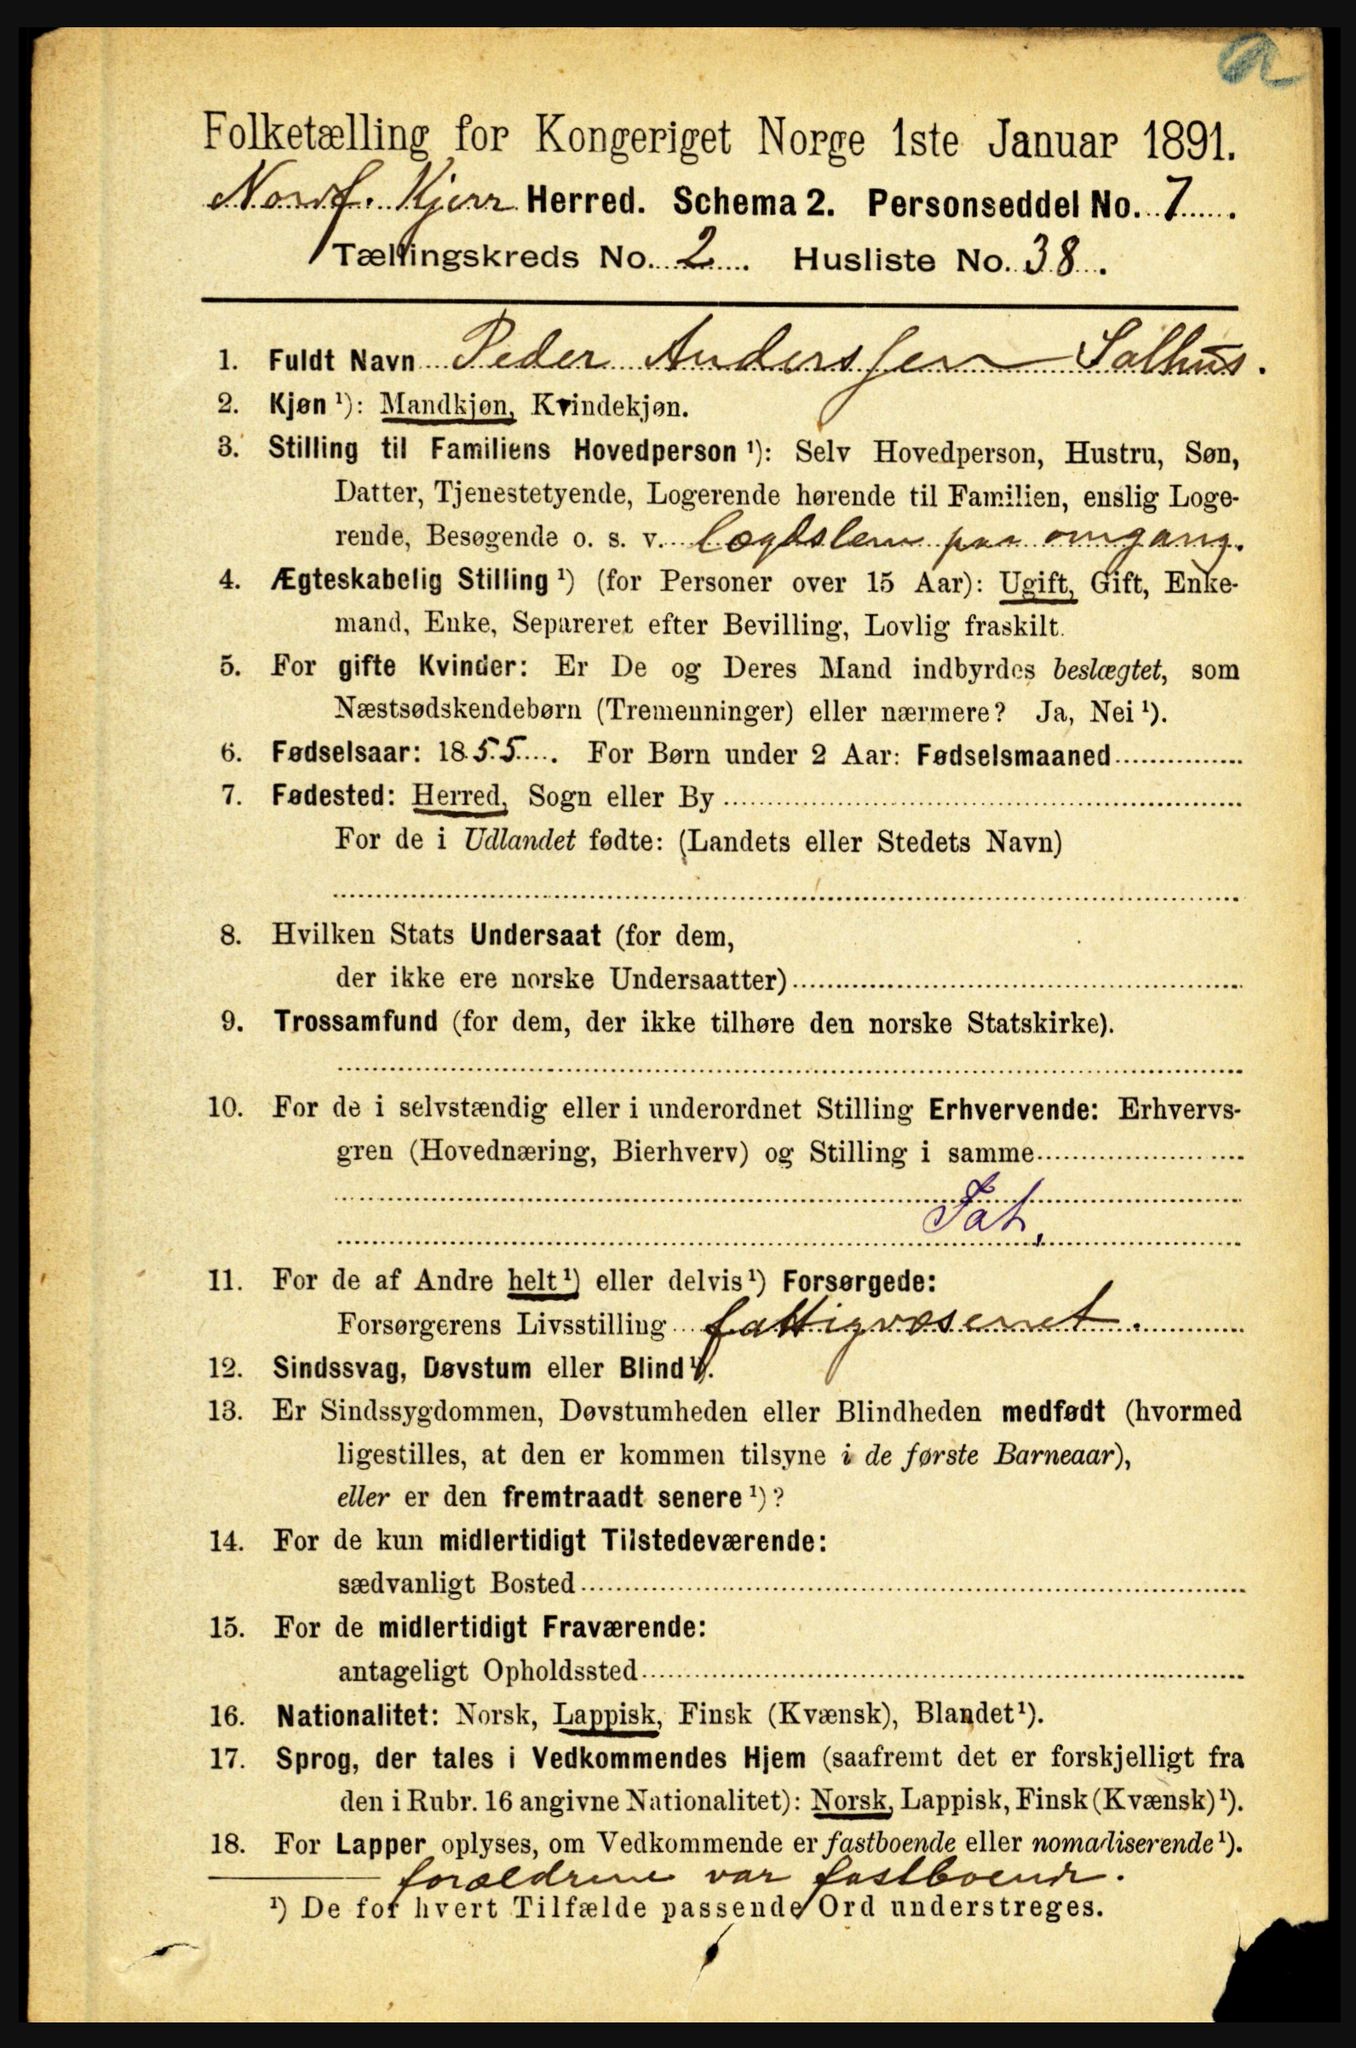 a
Folketælling for Kongeriget Norge 1ste Januar 1891.
Nordf. Kjerr Herred. Schema 2. Personseddel No. 7.
Tællingskreds No. 2. Husliste No. 38.
1. Fuldt Navn Peder Anderssen Salhus.
2. Kjøn ¹): Mandkjøn, Kvindekjøn.
3. Stilling til Familiens Hovedperson ¹): Selv Hovedperson, Hustru, Søn,
Datter, Tjenestetyende, Logerende hørende til Familien, enslig Loge-
rende, Besøgende o. s. v. Lægdslem paa omgang.
4. Ægteskabelig Stilling ¹) (for Personer over 15 Aar): Ugift, Gift, Enke-
mand, Enke, Separeret efter Bevilling, Lovlig fraskilt.
5. For gifte Kvinder: Er De og Deres Mand indbyrdes beslægtet, som
Næstsødskendebørn (Tremenninger) eller nærmere? Ja, Nei ¹).
6. Fødselsaar: 1855. For Børn under 2 Aar: Fødselsmaaned
7. Fødested: Herred, Sogn eller By
For de i Udlandet fødte: (Landets eller Stedets Navn)
8. Hvilken Stats Undersaat (for dem,
der ikke ere norske Undersaatter)
9. Trossamfund (for dem, der ikke tilhøre den norske Statskirke).
10. For de i selvstændig eller i underordnet Stilling Erhvervende: Erhvervs-
gren (Hovednæring, Bierhverv) og Stilling i samme
Fat,
11. For de af Andre helt ¹) eller delvis ¹) Forsørgede:
Forsørgerens Livsstilling fattigvæsenet.
12. Sindssvag, Døvstum eller Blind ¹).
13. Er Sindssygdommen, Døvstumheden eller Blindheden medfødt (hvormed
ligestilles, at den er kommen tilsyne i de første Barneaar),
eller er den fremtraadt senere ¹)?
14. For de kun midlertidigt Tilstedeværende:
sædvanligt Bosted
15. For de midlertidigt Fraværende:
antageligt Opholdssted
16. Nationalitet: Norsk, Lappisk, Finsk (Kvænsk), Blandet ¹).
17. Sprog, der tales i Vedkommendes Hjem (saafremt det er forskjelligt fra
den i Rubr. 16 angivne Nationalitet): Norsk, Lappisk, Finsk (Kvænsk) ¹).
18. For Lapper oplyses, om Vedkommende er fastboende eller nomadiserende ¹).
forældrene var fastboend.
¹) De for hvert Tilfælde passende Ord understreges.